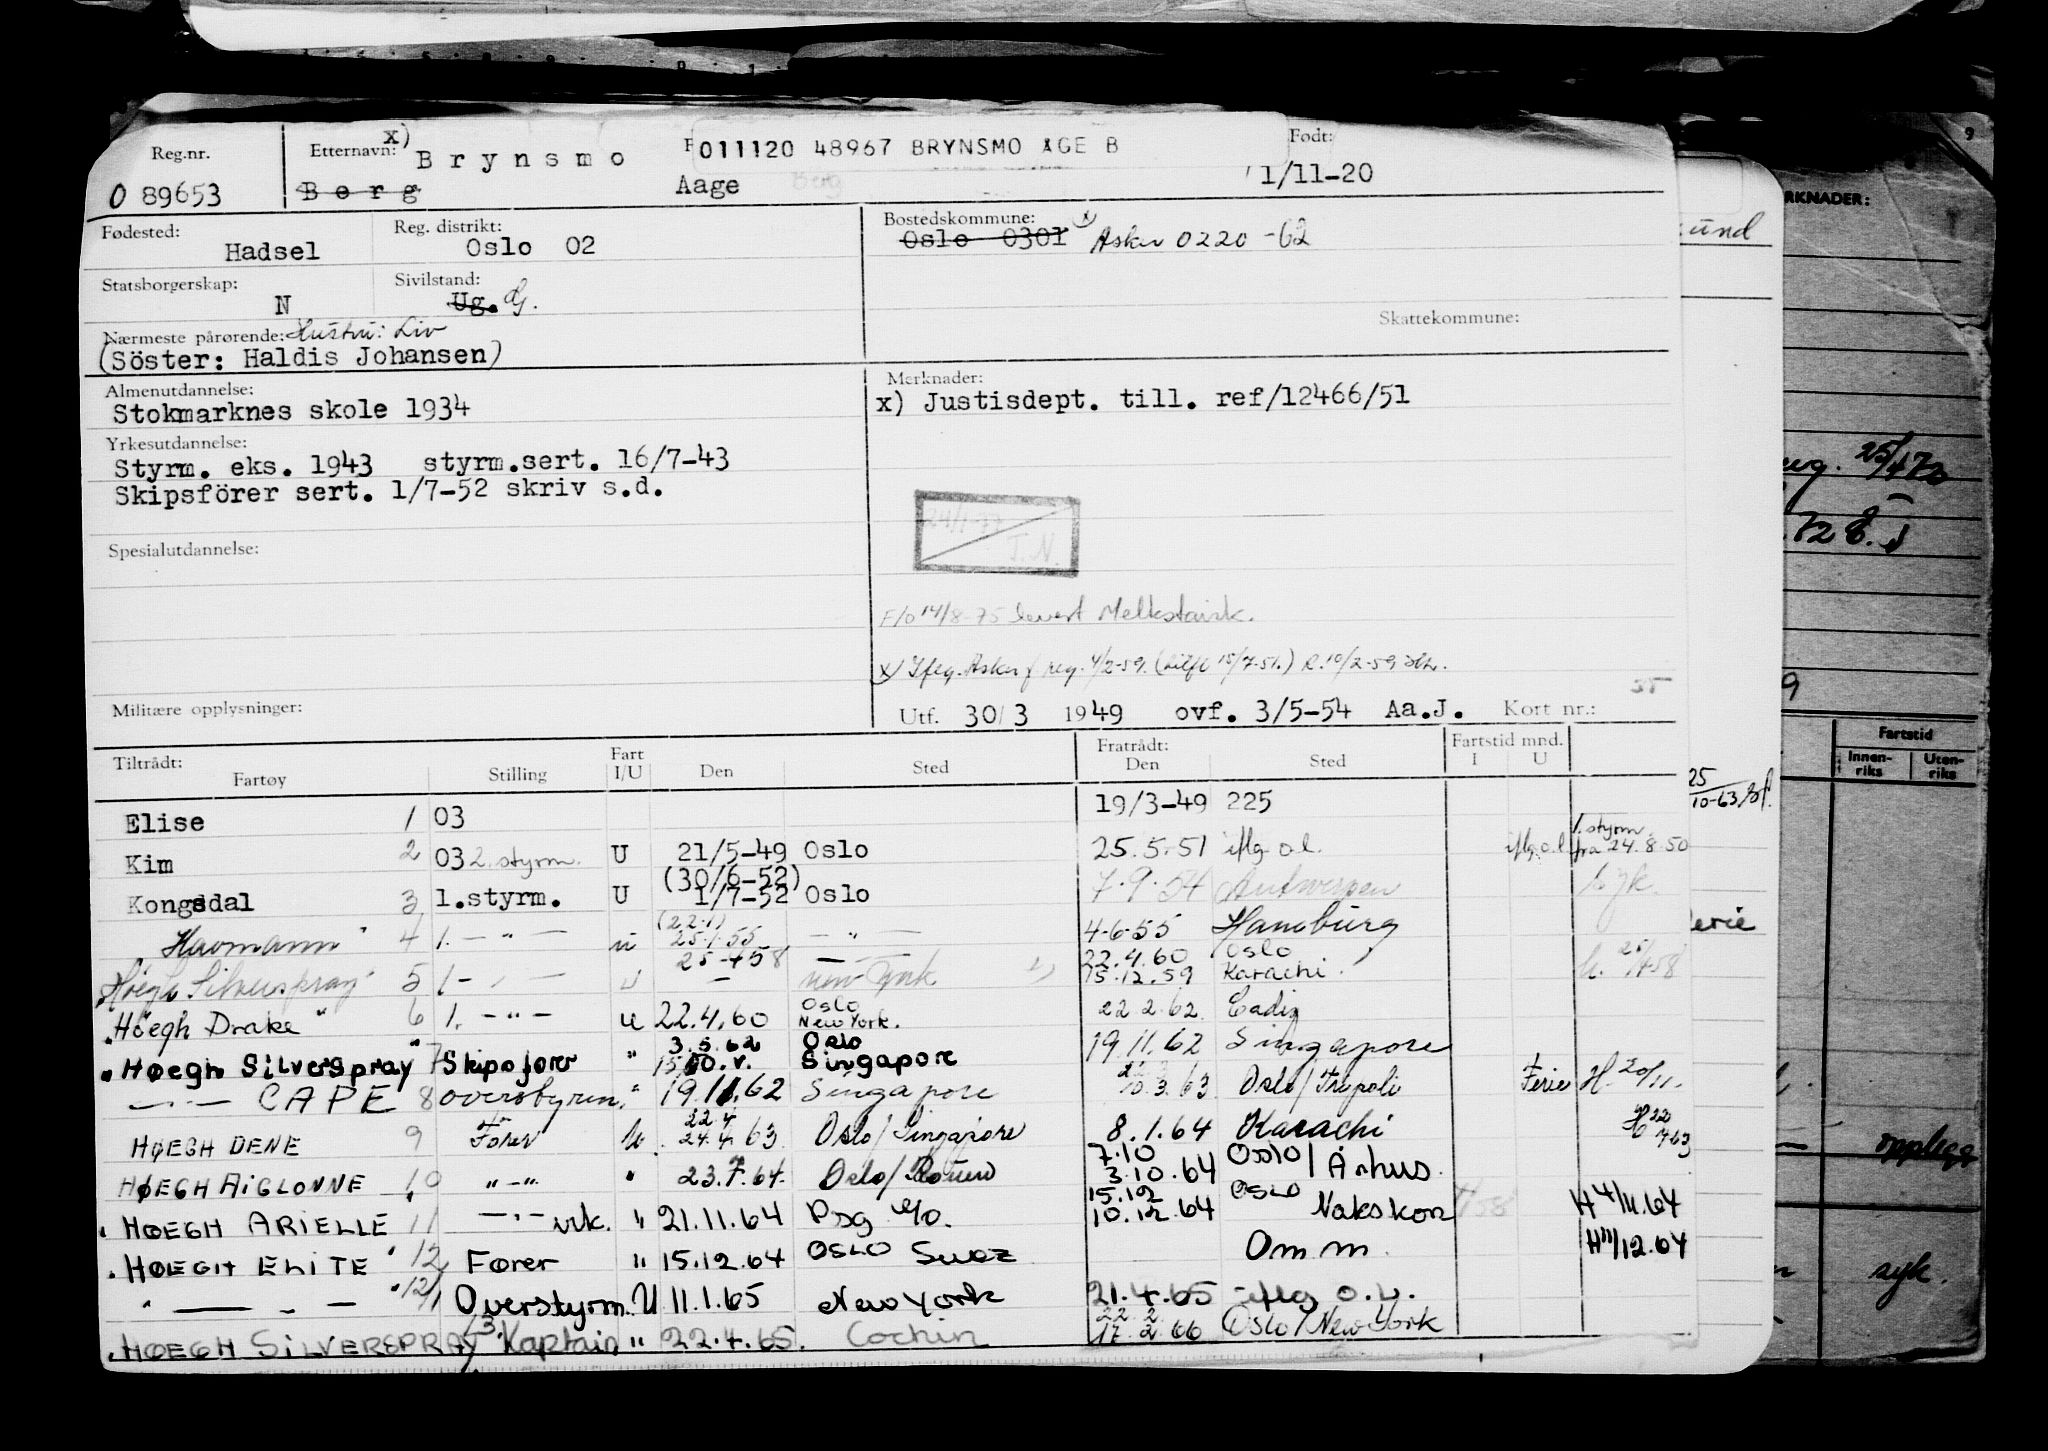 Reg.nr.
O 89653
Etternavn: x) Brynsmo
Berg
011120 48967 BRYNSMO ÅGE B
Aage
Født:
1/11-20
Fødested:
Hadsel
Reg. distrikt:
Oslo 02
Bostedskommune: x)
Oslo 0301 Asker 0220 -62
Statsborgerskap:
N
Sivilstand:
Ug. G.
Skattekommune:
Nærmeste pårørende: Hustru: Liv
(Söster: Haldis Johansen)
Almenutdannelse:
Stokmarknes skole 1934
Merknader:
x) Justisdept. till. ref/12466/51
Yrkesutdannelse:
Styrm. eks. 1943 styrm.sert. 16/7-43
Skipsförer sert. 1/7-52 skriv s.d.
24/1-77
I.N.
Spesialutdannelse:
F/o 14/8-75 levert
x) Iføg. Asker f reg. 4/2-59. 15/7-51.) R. 10/2-59
Militære opplysninger:
Utf. 30/3 1949 ovf. 3/5-54 Aa.J. Kort nr.:
Tiltrådt:
Fartøy Stilling Fart I/U Den Sted Fratrådt: Den Sted Fartstid mnd. I U
Elise 1 03 19/3-49 225
Kim 2 03 2. styrm. U 21/5-49 Oslo 25.5.51 iflg o.l. iflg. o.l. 1. styrm fra 24.8.50
Kongsdal 3 1.styrm. U (30/6-52) 1/7-52 Oslo 7.9.54 Antwerpen syk.
Havmann 4 1. — " — u (22.1) 25.1.55 — " — 4.6.55 Hamburg
Høegh Silverspray 5 1 - " - u 25-4-58 — New York 22.4.60 15.12.59 Oslo Karachi
"Høegh Drake" 6 1. — " — u 22.4.60 Oslo New York. 22.2.62 Cadiz
"Høegh Silverspray" 7 Skipsfører " 3.5.62 Oslo Singapore 19.11.62 Singapore
— " — CAPE 8 overstyrm. " 19.11.62 Singapore 10.3.63 Oslo/Tripoli Ferie H. 20/11.
HØEGH DENE 9 Fører u. 22.4 24.4.63 Oslo/Singapore 8.1.64 Karachi
HØEGH AIGLONNE 10 " — " " 23.7.64. Oslo/Rouen 7.10 3.10.64 Oslo/Århus.
"HØEGH ARIELLE 11 — " — vik. " 21.11.64 Psg 15.12 10.12.64 OSLO Nakskov H 4/11.64
"HØEGH ELITE" 12 Fører " 15.12.64 OSLO Suez Om m. H 11/12.64
" — " — 12/1 Overstyrm. U 11.1.65 New York 21.4.65 iflg o.l.
"HØEGH SILVERSPRAY 13 Kaptein " 22.4.65. Cochin 22.2. 17.2.66 Oslo/New York
RKNADER:
Fartstid
Innen-riks
Uten-riks
syk.